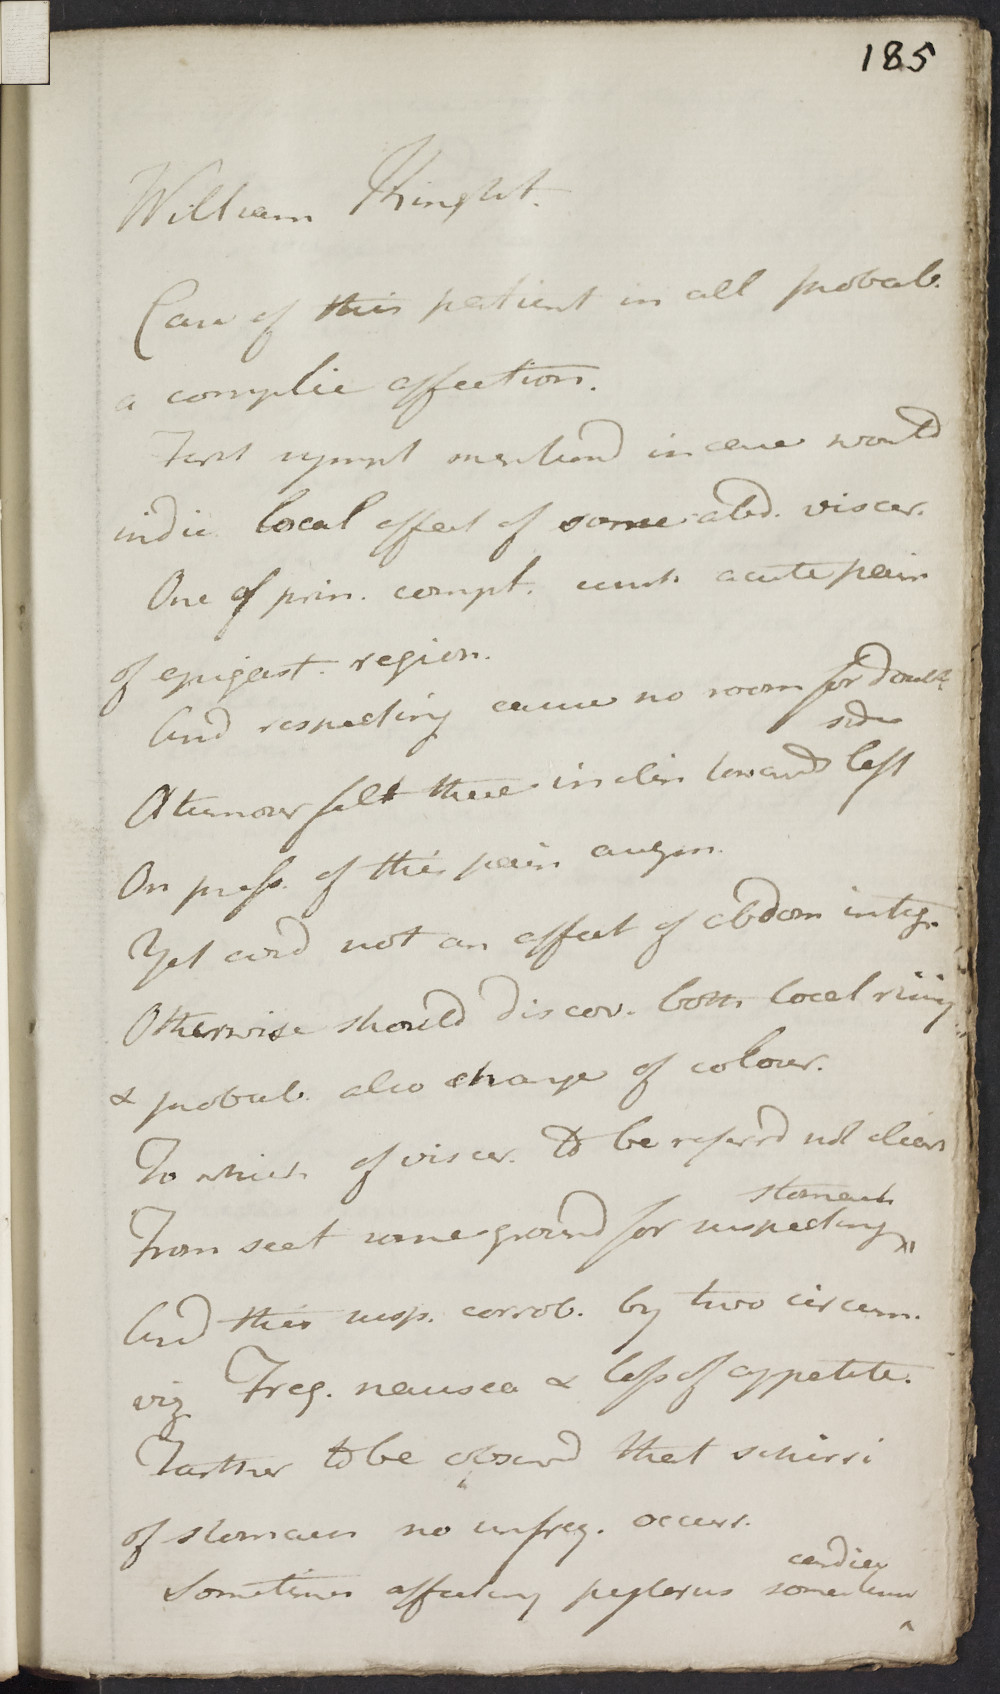 185
William Knight.
Case of this patient in all probab.
a complic affection.
First sympt mentiond in case would
indic local affect of some abd. viscer.
One of prin. compt. much acute pain
of epigast. region.
And respecting cause no room for doubt
side
felt there inclin towards left
On press. of this pain augm.
Yet coud not an affect of abdom integ.
Otherwise should discov. both local rising
& probab. also change of colour.
To which of viscer. to be referrd not clear
stomach
From seat some ground for suspecting
And this susp. corrob. by two circum.
viz Freq. nausea & loss of appetite.
Farther to be observd that schirri
of stomach no unfreq. occurr.
cardia
Sometimes affecting pylorus sometimes